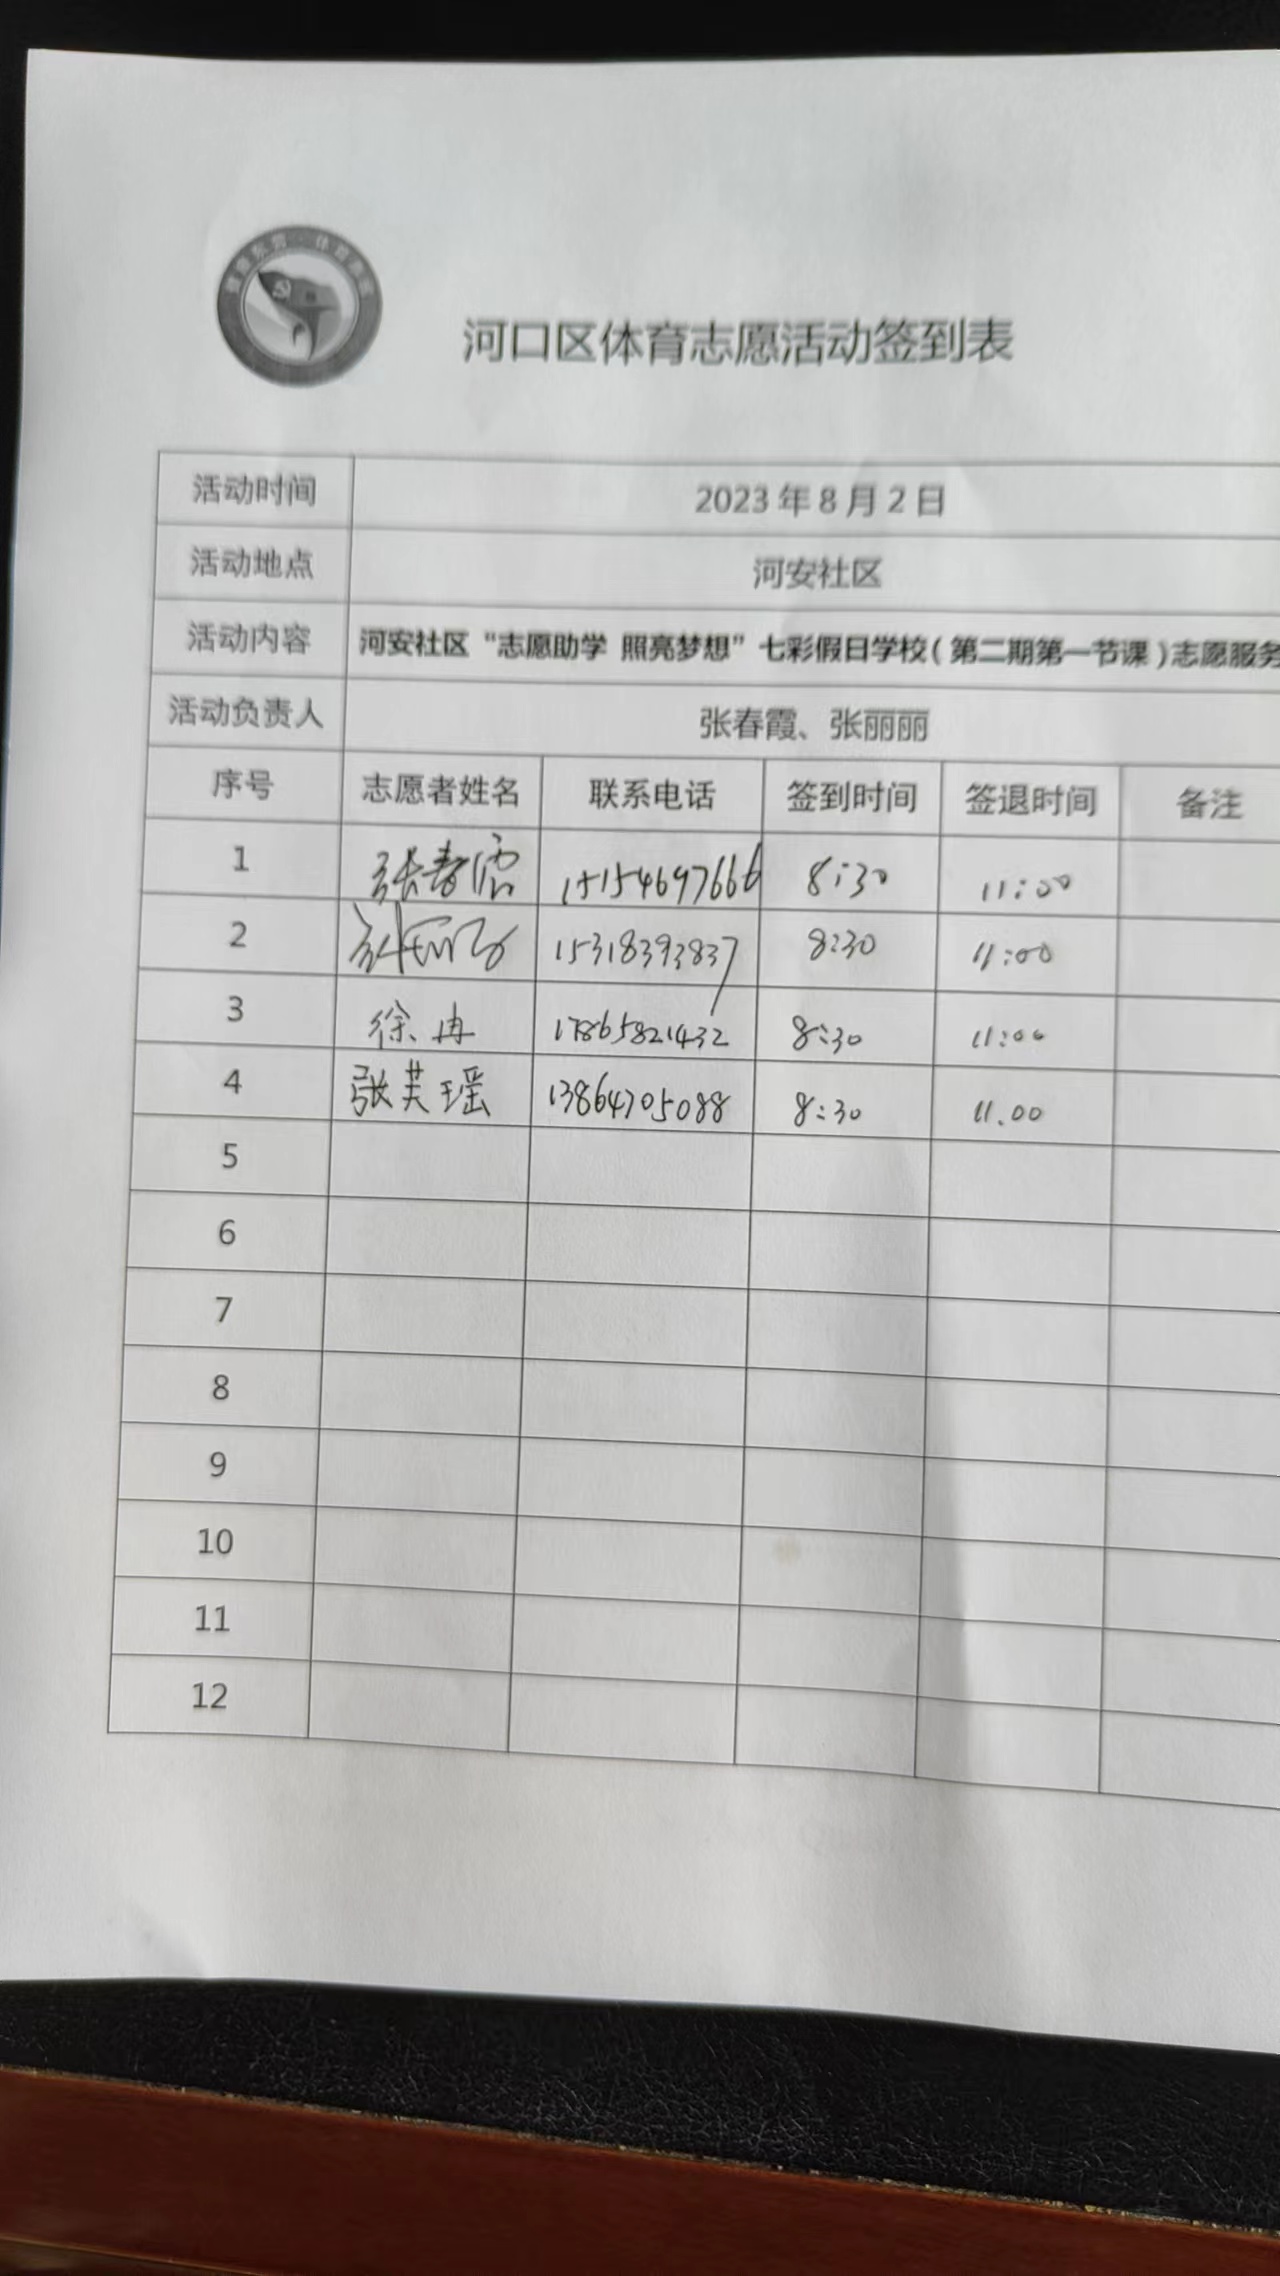 河口区体育志愿活动签到表
活动时间 2023年8月2日
活动地点 河安社区
活动内容 河安社区“志愿助学 照亮梦想”七彩假日学校(第二期第一节课)志愿服务
活动负责人 张春霞、张丽丽
序号 志愿者姓名 联系电话 签到时间 签退时间 备注
1 张春霞 15154697666 8:30 11:00
2 15318393837 8:30 11:00
3 徐冉 17865821432 8:30 11:00
4 张芙瑶 13864705088 8:30 11.00
5
6
7
8
9
10
11
12